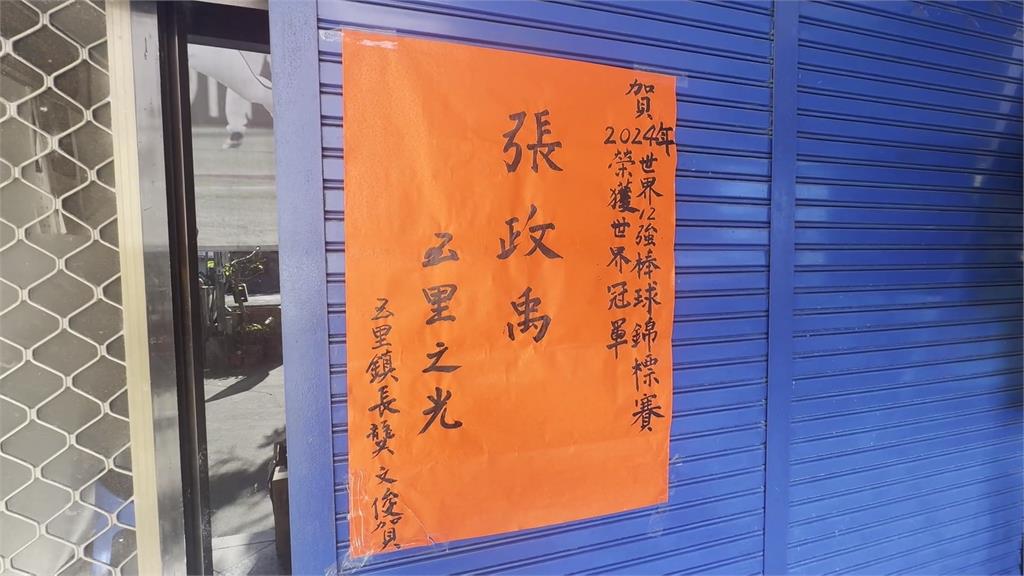 賀
2024年
世界12強棒球錦標賽
榮獲世界冠軍
張政禹
玉里之光
玉里鎮長龔文俊賀